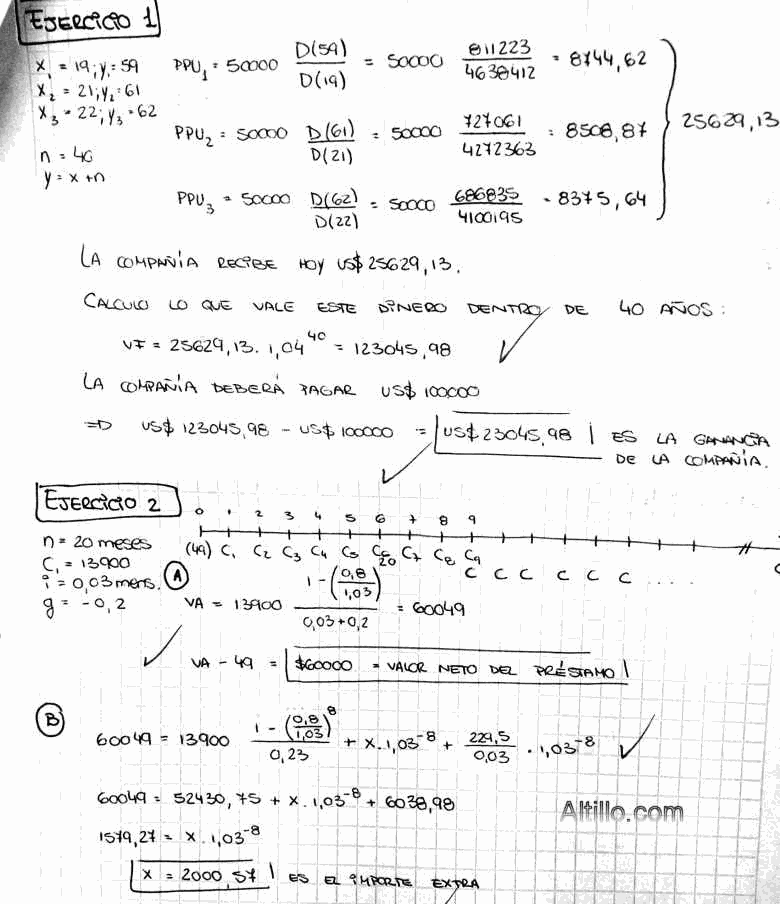 EJERCICIO 1
x₁ = 19; y₁ = 59
x₂ = 21; y₂ = 61
x₃ = 22; y₃ = 62
n = 40
y = x + n
PPU₁ = 50000 D(59)/D(19) = 50000 811223/4638412 = 8744,62
PPU₂ = 50000 D(61)/D(21) = 50000 727061/4272363 = 8508,87
PPU₃ = 50000 D(62)/D(22) = 50000 686835/4100195 = 8375,64
25629,13
LA COMPAÑÍA RECIBE HOY US$ 25629,13.
CALCULO LO QUE VALE ESTE DINERO DENTRO DE 40 AÑOS:
VF = 25629,13 . 1,04^40 = 123045,98
LA COMPAÑÍA DEBERÁ PAGAR US$ 100000
=D US$ 123045,98 - US$ 100000 = US$ 23045,98 ES LA GANANCIA
DE LA COMPAÑÍA.
EJERCICIO 2
0 1 2 3 4 5 6 7 8 9
(49) C₁ C₂ C₃ C₄ C₅ C₆ C₇ C₈ C₉
C C C C C C ....
n = 20 meses
C₁ = 13900
i = 0,03 mens.
g = -0,2
A
VA = 13900 (1 - (0,8/1,03)^20)/(0,03 + 0,2) = 60049
VA - 49 = $60000 = VALOR NETO DEL PRÉSTAMO
B
60049 = 13900 (1 - (0,8/1,03)^8)/0,23 + x . 1,03^-8 + 229,5/0,03 . 1,03^-8
60049 = 52430,75 + x . 1,03^-8 + 6038,98
1579,27 = x . 1,03^-8
x = 2000,57 ES EL IMPORTE EXTRA
Altillo.com